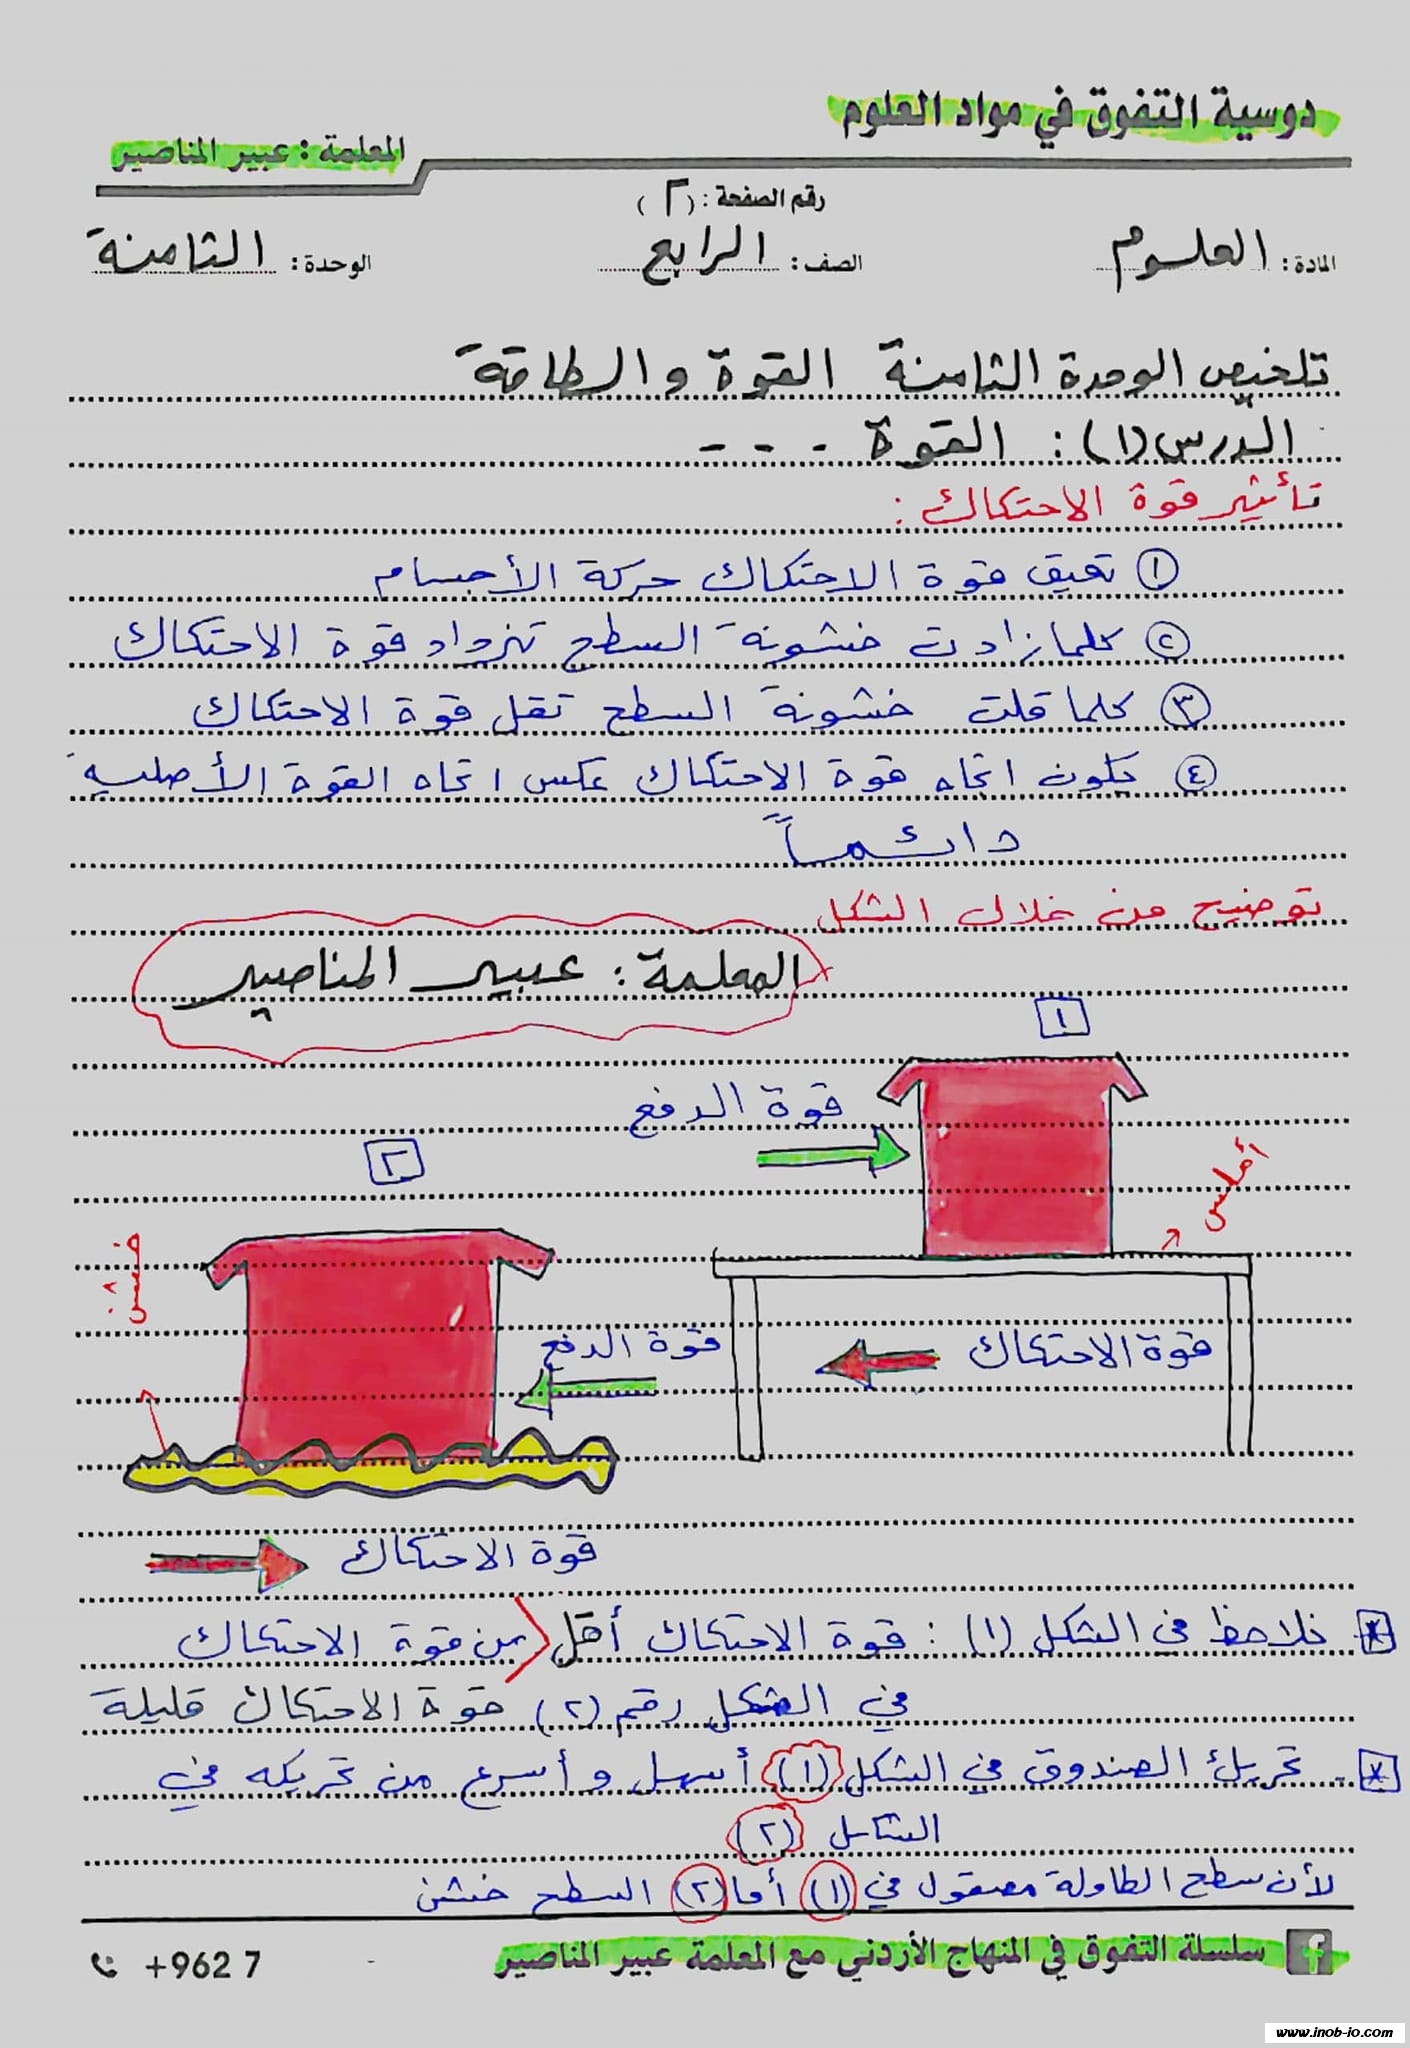 دوسية التفوق في مواد العلوم
المعلمة : عبير المناصير
رقم الصفحة : (٢)
المادة : العلوم الصف : الرابع الوحدة : الثامنة
تلخيص الوحدة الثامنة القوة والطاقة
الدرس (١) : القوة - - -
تأثير قوة الاحتكاك :
١ تعيق قوة الاحتكاك حركة الأجسام
٢ كلما زادت خشونة السطح تزداد قوة الاحتكاك
٣ كلما قلت خشونة السطح تقل قوة الاحتكاك
٤ يكون اتجاه قوة الاحتكاك عكس اتجاه القوة الأصلية
دائماً
توضيح من خلال الشكل
المعلمة : عبير المناصير
١
قوة الدفع
أملس
قوة الاحتكاك
٢
خشن
قوة الدفع
قوة الاحتكاك
* نلاحظ في الشكل (١) : قوة الاحتكاك أقل من قوة الاحتكاك
في الشكل رقم (٢) قوة الاحتكاك قليلة
* تحريك الصندوق في الشكل (١) أسهل و أسرع من تحريكه في
الشكل (٢)
لأن سطح الطاولة مصقول في (١) أما (٢) السطح خشن
سلسلة التفوق في المنهاج الأردني مع المعلمة عبير المناصير
+962 7
www.inob-jo.com